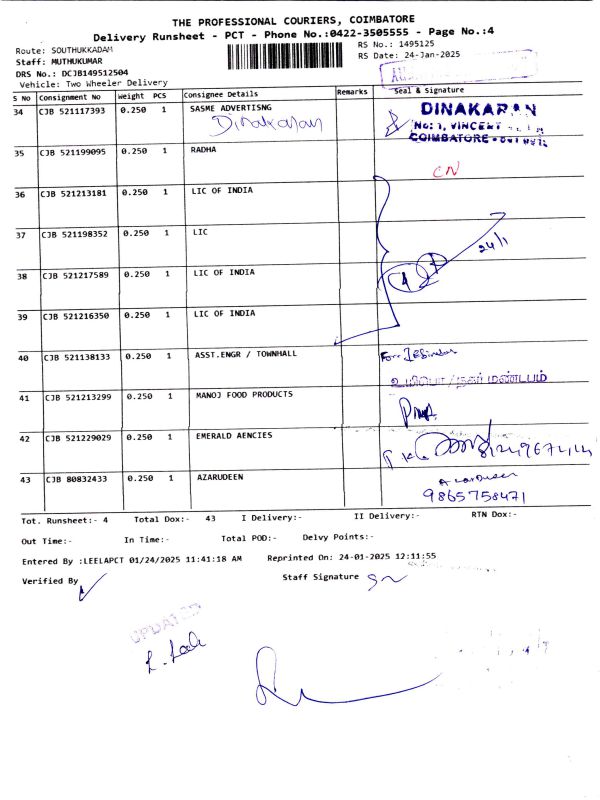 THE PROFESSIONAL COURIERS, COIMBATORE
Delivery Runsheet - PCT - Phone No.:0422-3505555 - Page No.:4
Route: SOUTHUKKADAM
RS No.: 1495125
Staff: MUTHUKUMAR
RS Date: 24-Jan-2025
DRS No.: DCJB149512504
Vehicle: Two Wheeler Delivery
S No Consignment No Weight PCS Consignee Details Remarks Seal & Signature
34 CJB 521117393 0.250 1 SASME ADVERTISNG DINAKARAN
Dinakaran No: 1, VINCENT
COIMBATORE
35 CJB 521199095 0.250 1 RADHA
CN
36 CJB 521213181 0.250 1 LIC OF INDIA
37 CJB 521198352 0.250 1 LIC
24/1
38 CJB 521217589 0.250 1 LIC OF INDIA
4
39 CJB 521216350 0.250 1 LIC OF INDIA
40 CJB 521138133 0.250 1 ASST.ENGR / TOWNHALL
உமிபொ/நகர் மண்டபம்
41 CJB 521213299 0.250 1 MANOJ FOOD PRODUCTS
42 CJB 521229029 0.250 1 EMERALD AENCIES
43 CJB 80832433 0.250 1 AZARUDEEN
9865758471
Tot. Runsheet:- 4 Total Dox:- 43 I Delivery:- II Delivery:- RTN Dox:-
Out Time:- In Time:- Total POD:- Delvy Points:-
Entered By :LEELAPCT 01/24/2025 11:41:18 AM Reprinted On: 24-01-2025 12:11:55
Verified By Staff Signature
UPDATED